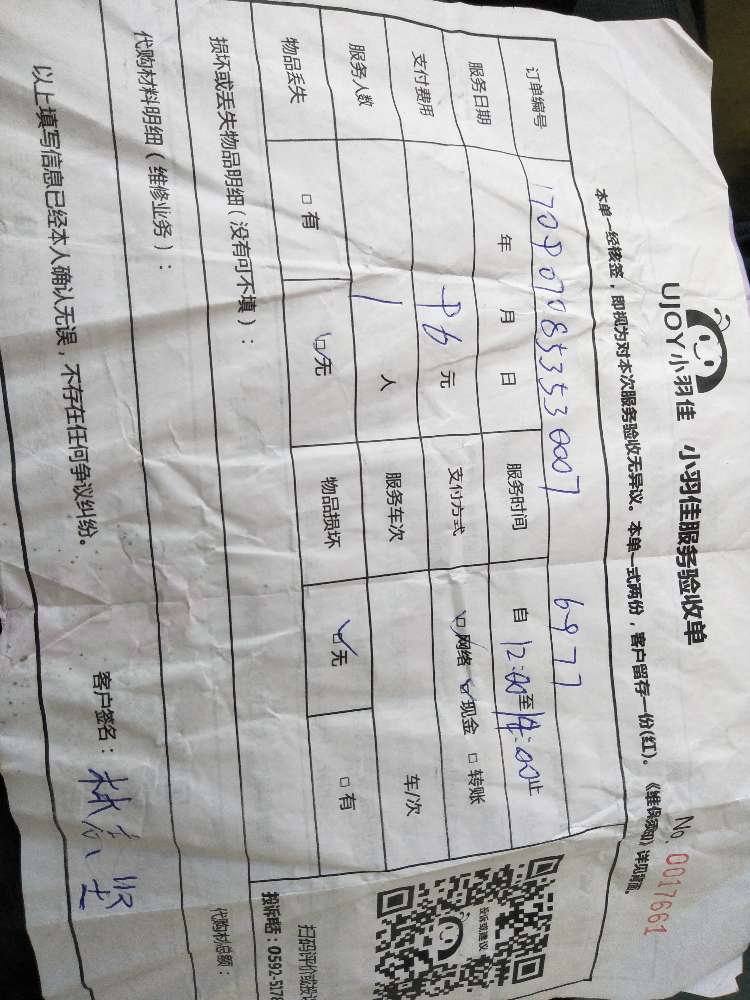 UJOY小羽佳 小羽佳服务验收单
No. 0017661
本单一经核签，即视为对本次服务验收无异议。本单一式两份，客户留存一份(红)。《维保须知》详见背面。
订单编号 1709070853530007 6977
服务日期 年 月 日 服务时间 自 12:00 至 14:00 止
支付费用 96 元 支付方式 ☑网络 ☑现金 □转账
服务人数 1 人 服务车次 车/次
物品丢失 □有 ☑无 物品损坏 ☑无 □有
损坏或丢失物品明细（没有可不填）：
代购材料明细（维修业务）：
代购材总额：
以上填写信息已经本人确认无误，不存在任何争议纠纷。
客户签名：林
投诉或建议
扫码评价或投
投诉电话：0592-5178